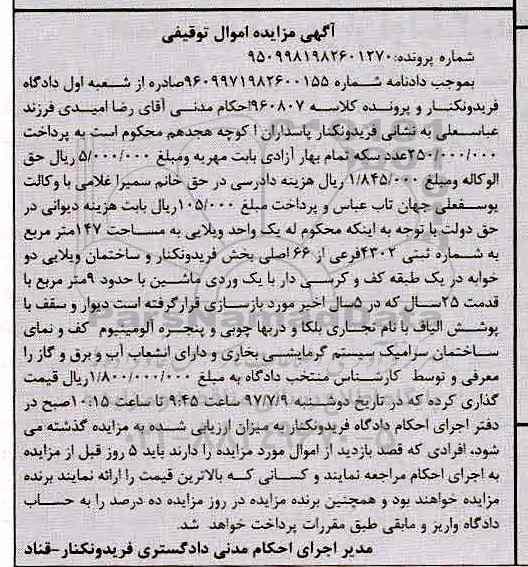 آگهی مزایده اموال توقیفی
شماره پرونده:۹۵۰۹۹۸۱۹۸۲۶۰۱۲۷۰
بموجب دادنامه شماره ۹۶۰۹۹۷۱۹۸۲۶۰۰۱۵۵صادره از شعبه اول دادگاه
فریدونکنار و پرونده کلاسه ۹۶۰۸۰۷احکام مدنی آقای رضا امیدی فرزند
عباسعلی به نشانی فریدونکنار پاسداران ۱ کوچه هجدهم محکوم است به پرداخت
۲۵۰/۰۰۰/۰۰۰عدد سکه تمام بهار آزادی بابت مهریه ومبلغ ۵/۰۰۰/۰۰۰ ریال حق
الوکاله ومبلغ ۱/۸۴۵/۰۰۰ ریال هزینه دادرسی در حق خانم سمیرا غلامی با وکالت
یوسفعلی جهان تاب عباس و پرداخت مبلغ ۱۰۵/۰۰۰ریال بابت هزینه دیوانی در
حق دولت با توجه به اینکه محکوم له یک واحد ویلایی به مساحت ۱۴۷متر مربع
به شماره ثبتی ۴۳۰۲فرعی از ۶۶ اصلی بخش فریدونکنار و ساختمان ویلایی دو
خوابه در یک طبقه کف و کرسی دار با یک وردی ماشین با حدود ۹متر مربع با
قدمت ۲۵سال که در ۵سال اخیر مورد بازسازی قرارگرفته است دیوار و سقف با
پوشش الیاف با نام تجاری بلکا و دربها چوبی و پنجره آلومینیوم کف و نمای
ساختمان سرامیک سیستم گرمایشی بخاری و دارای انشعاب آب و برق و گاز را
معرفی و توسط کارشناس منتخب دادگاه به مبلغ ۱/۸۰۰/۰۰۰/۰۰۰ریال قیمت
گذاری کرده که در تاریخ دوشنبه ۹۷/۷/۹ ساعت ۹:۴۵ تا ساعت ۱۰:۱۵صبح در
دفتر اجرای احکام دادگاه فریدونکنار به میزان ارزیابی شده به مزایده گذشته می
شود، افرادی که قصد بازدید از اموال مورد مزایده را دارند باید ۵ روز قبل از مزایده
به اجرای احکام مراجعه نمایند و کسانی که بالاترین قیمت را ارائه نمایند برنده
مزایده خواهند بود و همچنین برنده مزایده در روز مزایده ده درصد را به حساب
دادگاه واریز و مابقی طبق مقررات پرداخت خواهد شد.
مدیر اجرای احکام مدنی دادگستری فریدونکنار-قناد